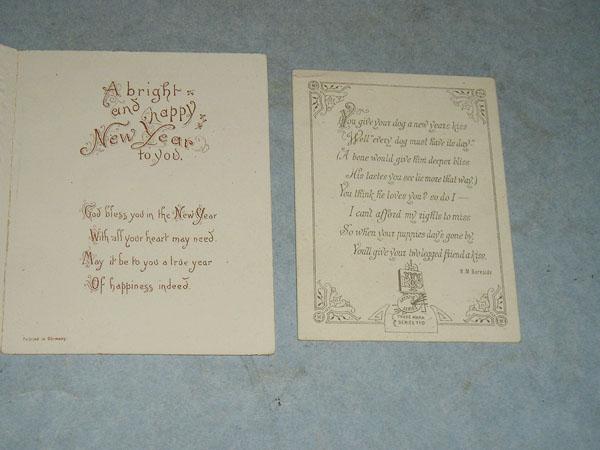 A bright
and happy
New Year
to you.
God bless you in the New Year
With all your heart may need.
May it be to you a true year
Of happiness indeed.
Printed in Germany.
You give your dog a new year's kiss
"Well" every dog must have its day."
(A bone would give him deeper bliss
His tastes you see lie more that way.)
You think he loves you? so do I —
I can't afford my rights to miss
So when your puppies day's gone by,
You'll give your two legged friend a kiss.
H. M. Burnside
TRADE MARK
SERIES 110